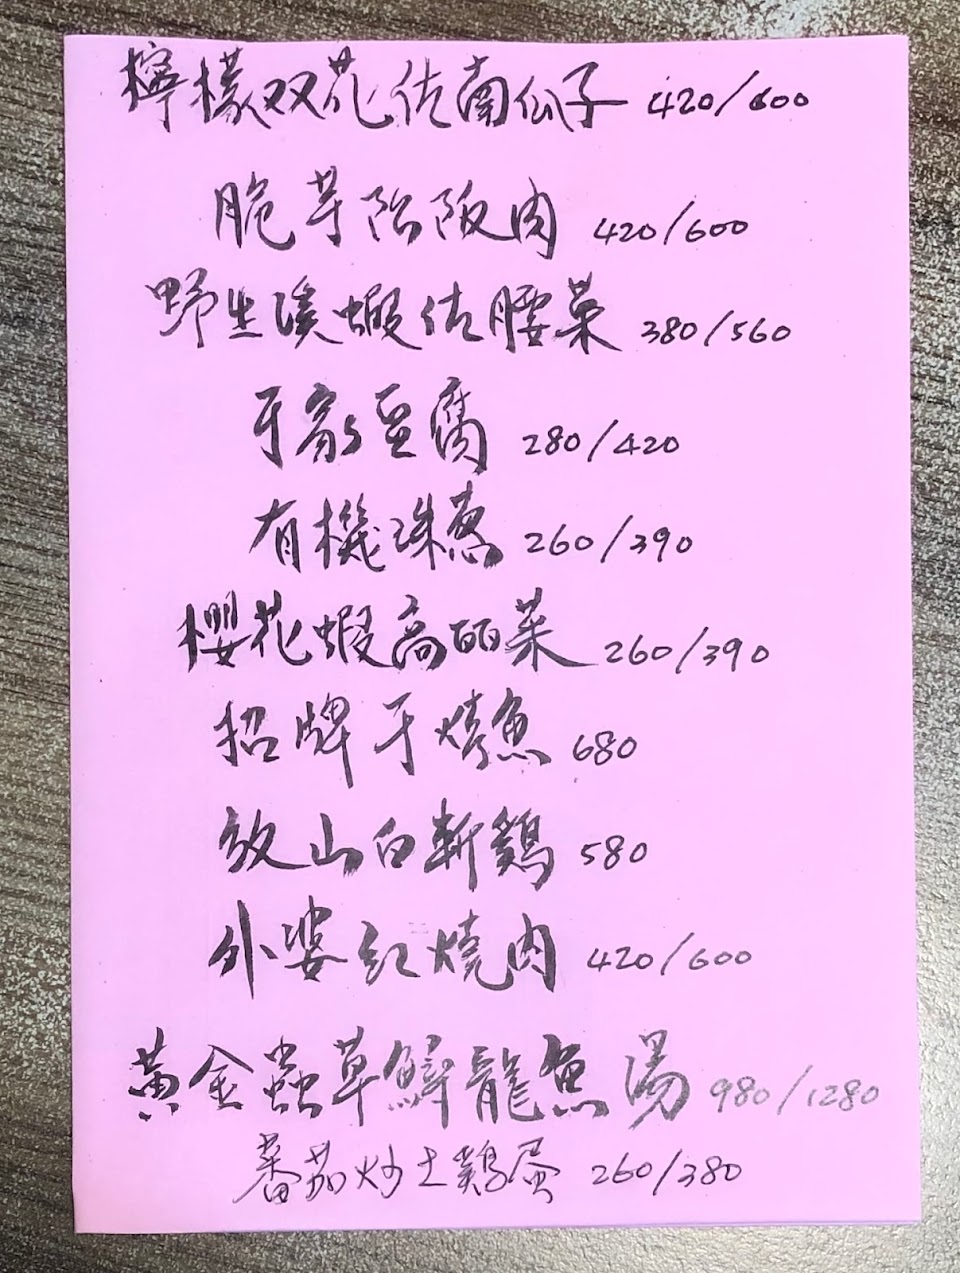 檸檬双花佐南瓜子 420/600
脆芋阪肉 420/600
野生溪蝦佐腰菓 380/560
豆腐 280/420
有機珠葱 260/390
櫻花蝦高麗菜 260/390
招牌干燒魚 680
放山白斬鷄 580
外婆紅燒肉 420/600
黃金蟲草鱘龍魚湯 980/1280
蕃茄炒土鷄蛋 260/380